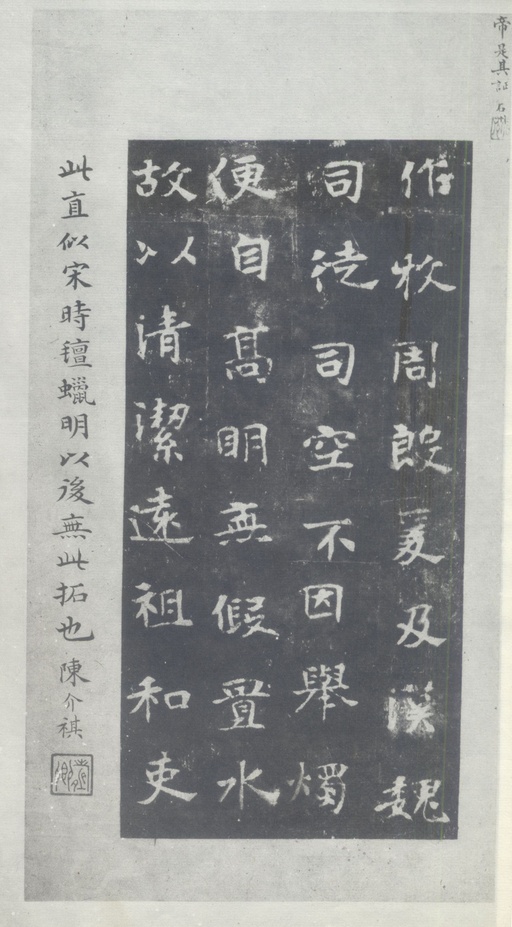 帝是其証
作牧周殷爰及漢魏
司徒司空不因舉燭
便自高明無假置水
故以清潔遠祖和吏
此直似宋時氊蠟明以後無此拓也 陳介祺